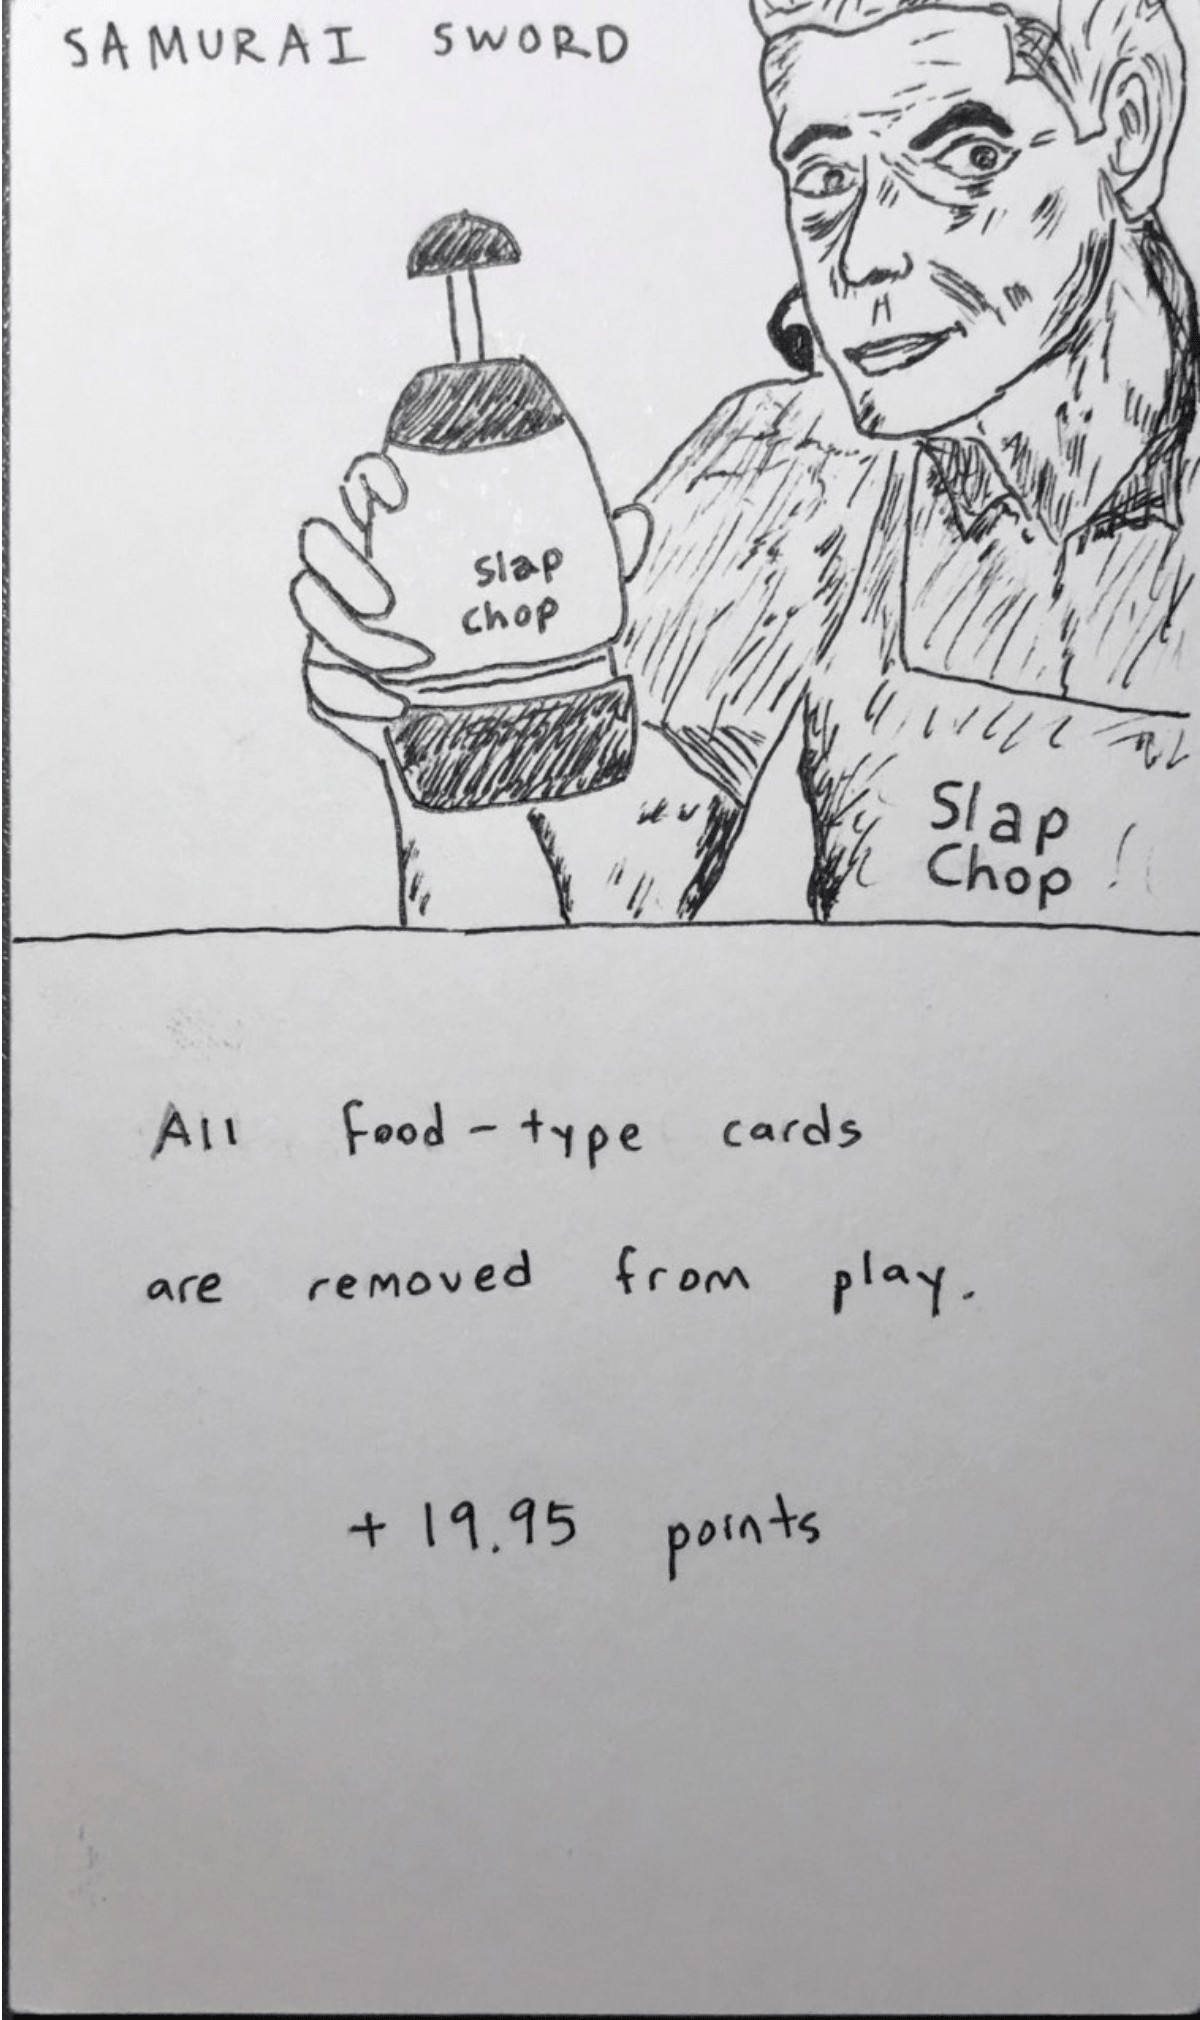 SAMURAI SWORD
slap
chop
Slap
Chop !
All food-type cards
are removed from play.
+ 19.95 points